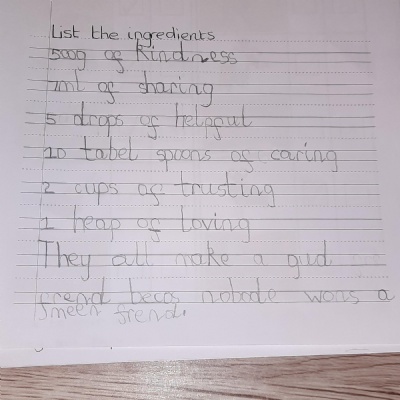 List the ingredients
500g of kindness
7ml of sharing
5 drops of helpful
10 tabel spoons of caring
2 cups of trusting
1 heap of loving
They all make a gud
frend becos nobode wons a
meen frend.